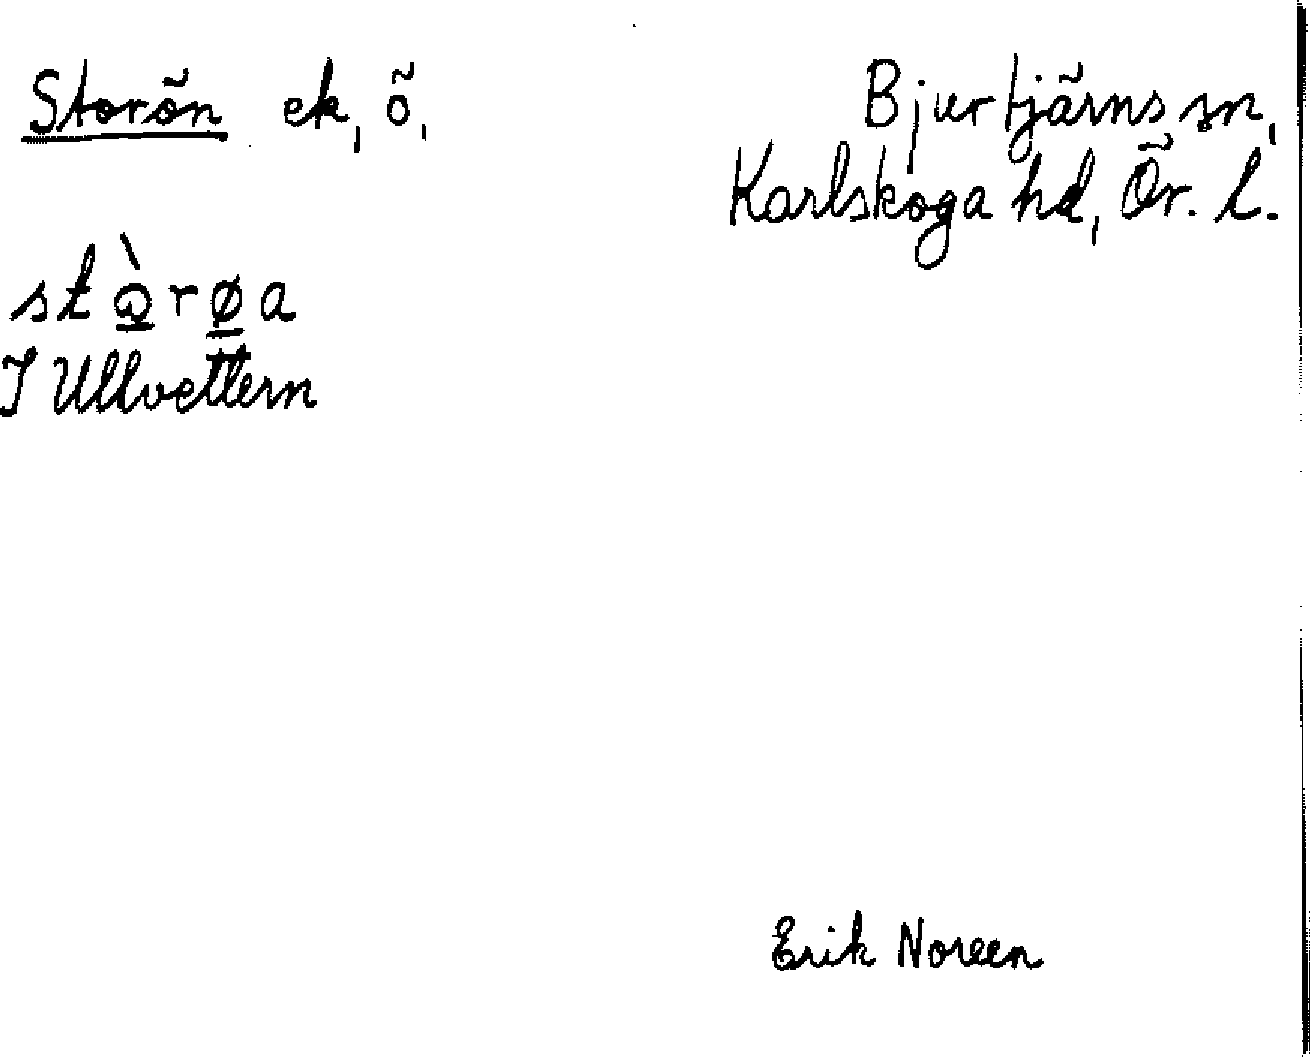 Storön ek, ö,
Bjurtjärns sn,
Karlskoga hd, Ör. l.
I Ullvettern
Erik Noreen